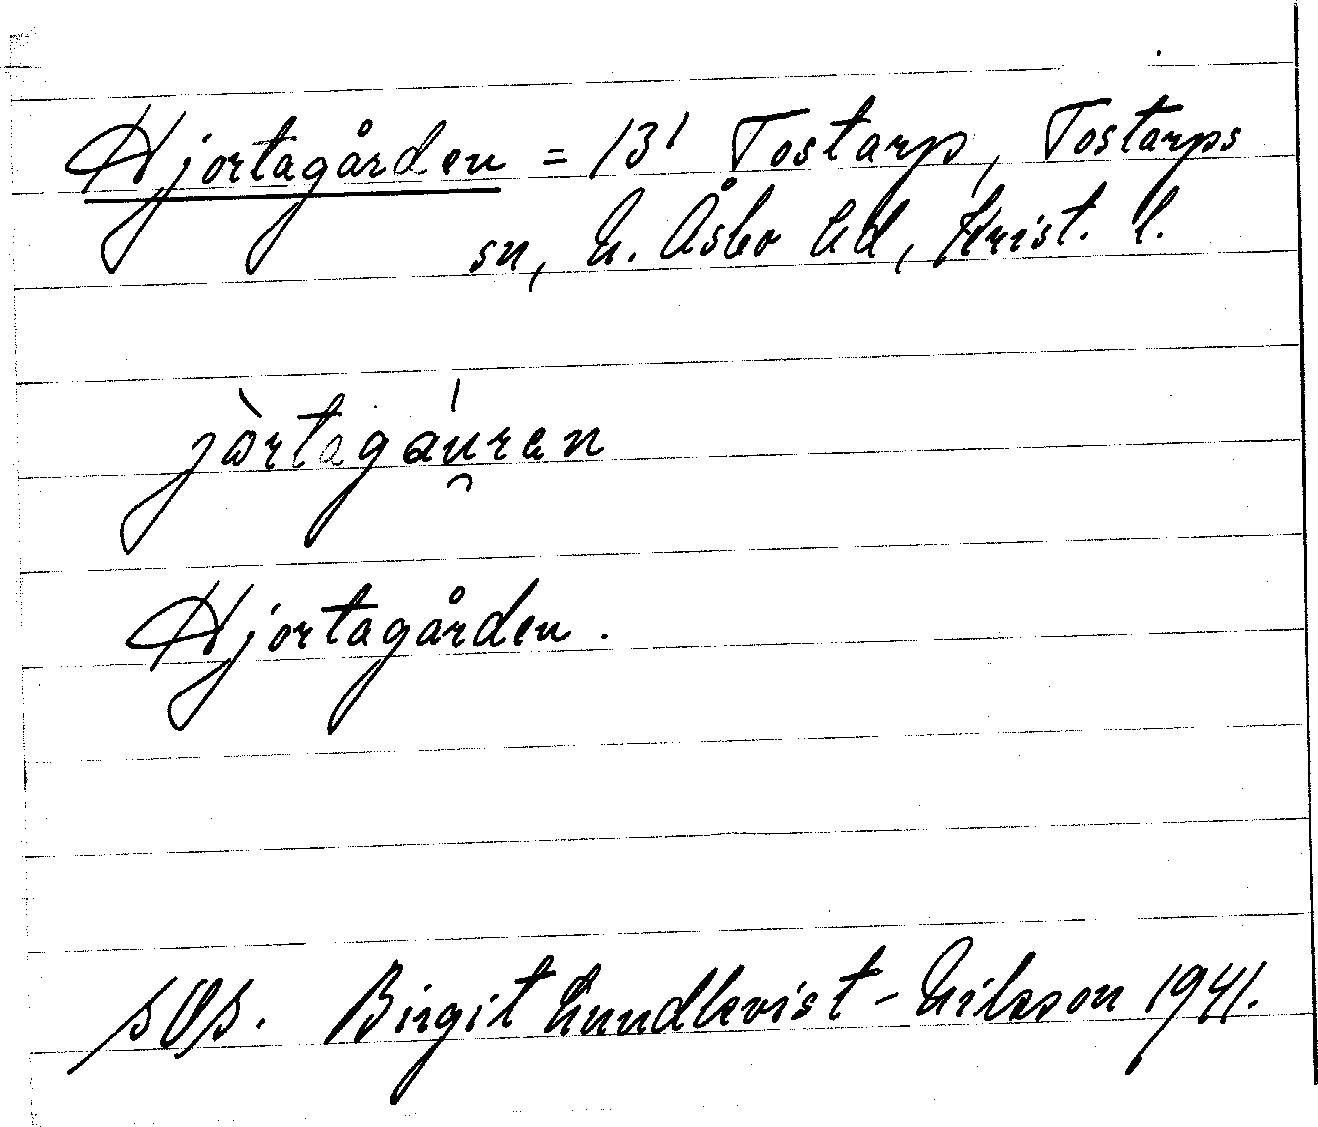 Hjortagården = 13¹ Tostarp, Tostarps
sn, N. Åsbo hd, Krist. l.
jòrtagáu̯ran
Hjortagården.
SOS. Birgit Lundkvist-Nilsson 1941.